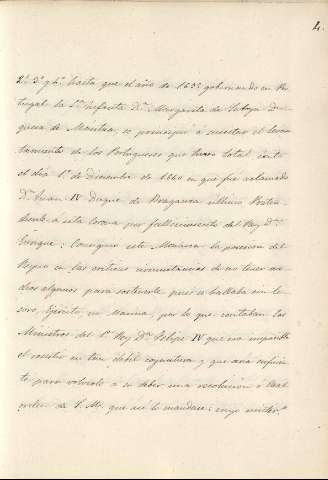 4.
2.º 3.º y 4.º hasta que el año de 1635 gobernando en Por-
tugal la S.ra Infanta D.ª Margarita de Saboya Du-
quesa de Mantua, se principió a suscitar el levan-
tamiento de los Portugueses que tuvo total éxito
el dia 1.º de diciembre de 1640 en que fué aclamado
D.n Juan IV Duque de Braganza último Preten-
diente á esta Corona por fallecimiento del Rey D.n
Enrique: Consiguió este Monarca la posesion del
Reyno en las críticas circunstancias de no tener me-
dios algunos para sostenerle pues se hallaba sin te-
soro, Ejército, ni Marina, por lo que contaban los
Ministros del S.r Rey D.n Felipe IV que era imposible
el resistir en tan debil coyuntura y que era suficien-
te para volverlo á su deber una resolucion ó Real
orden de S. M. que así lo mandase: cuyo